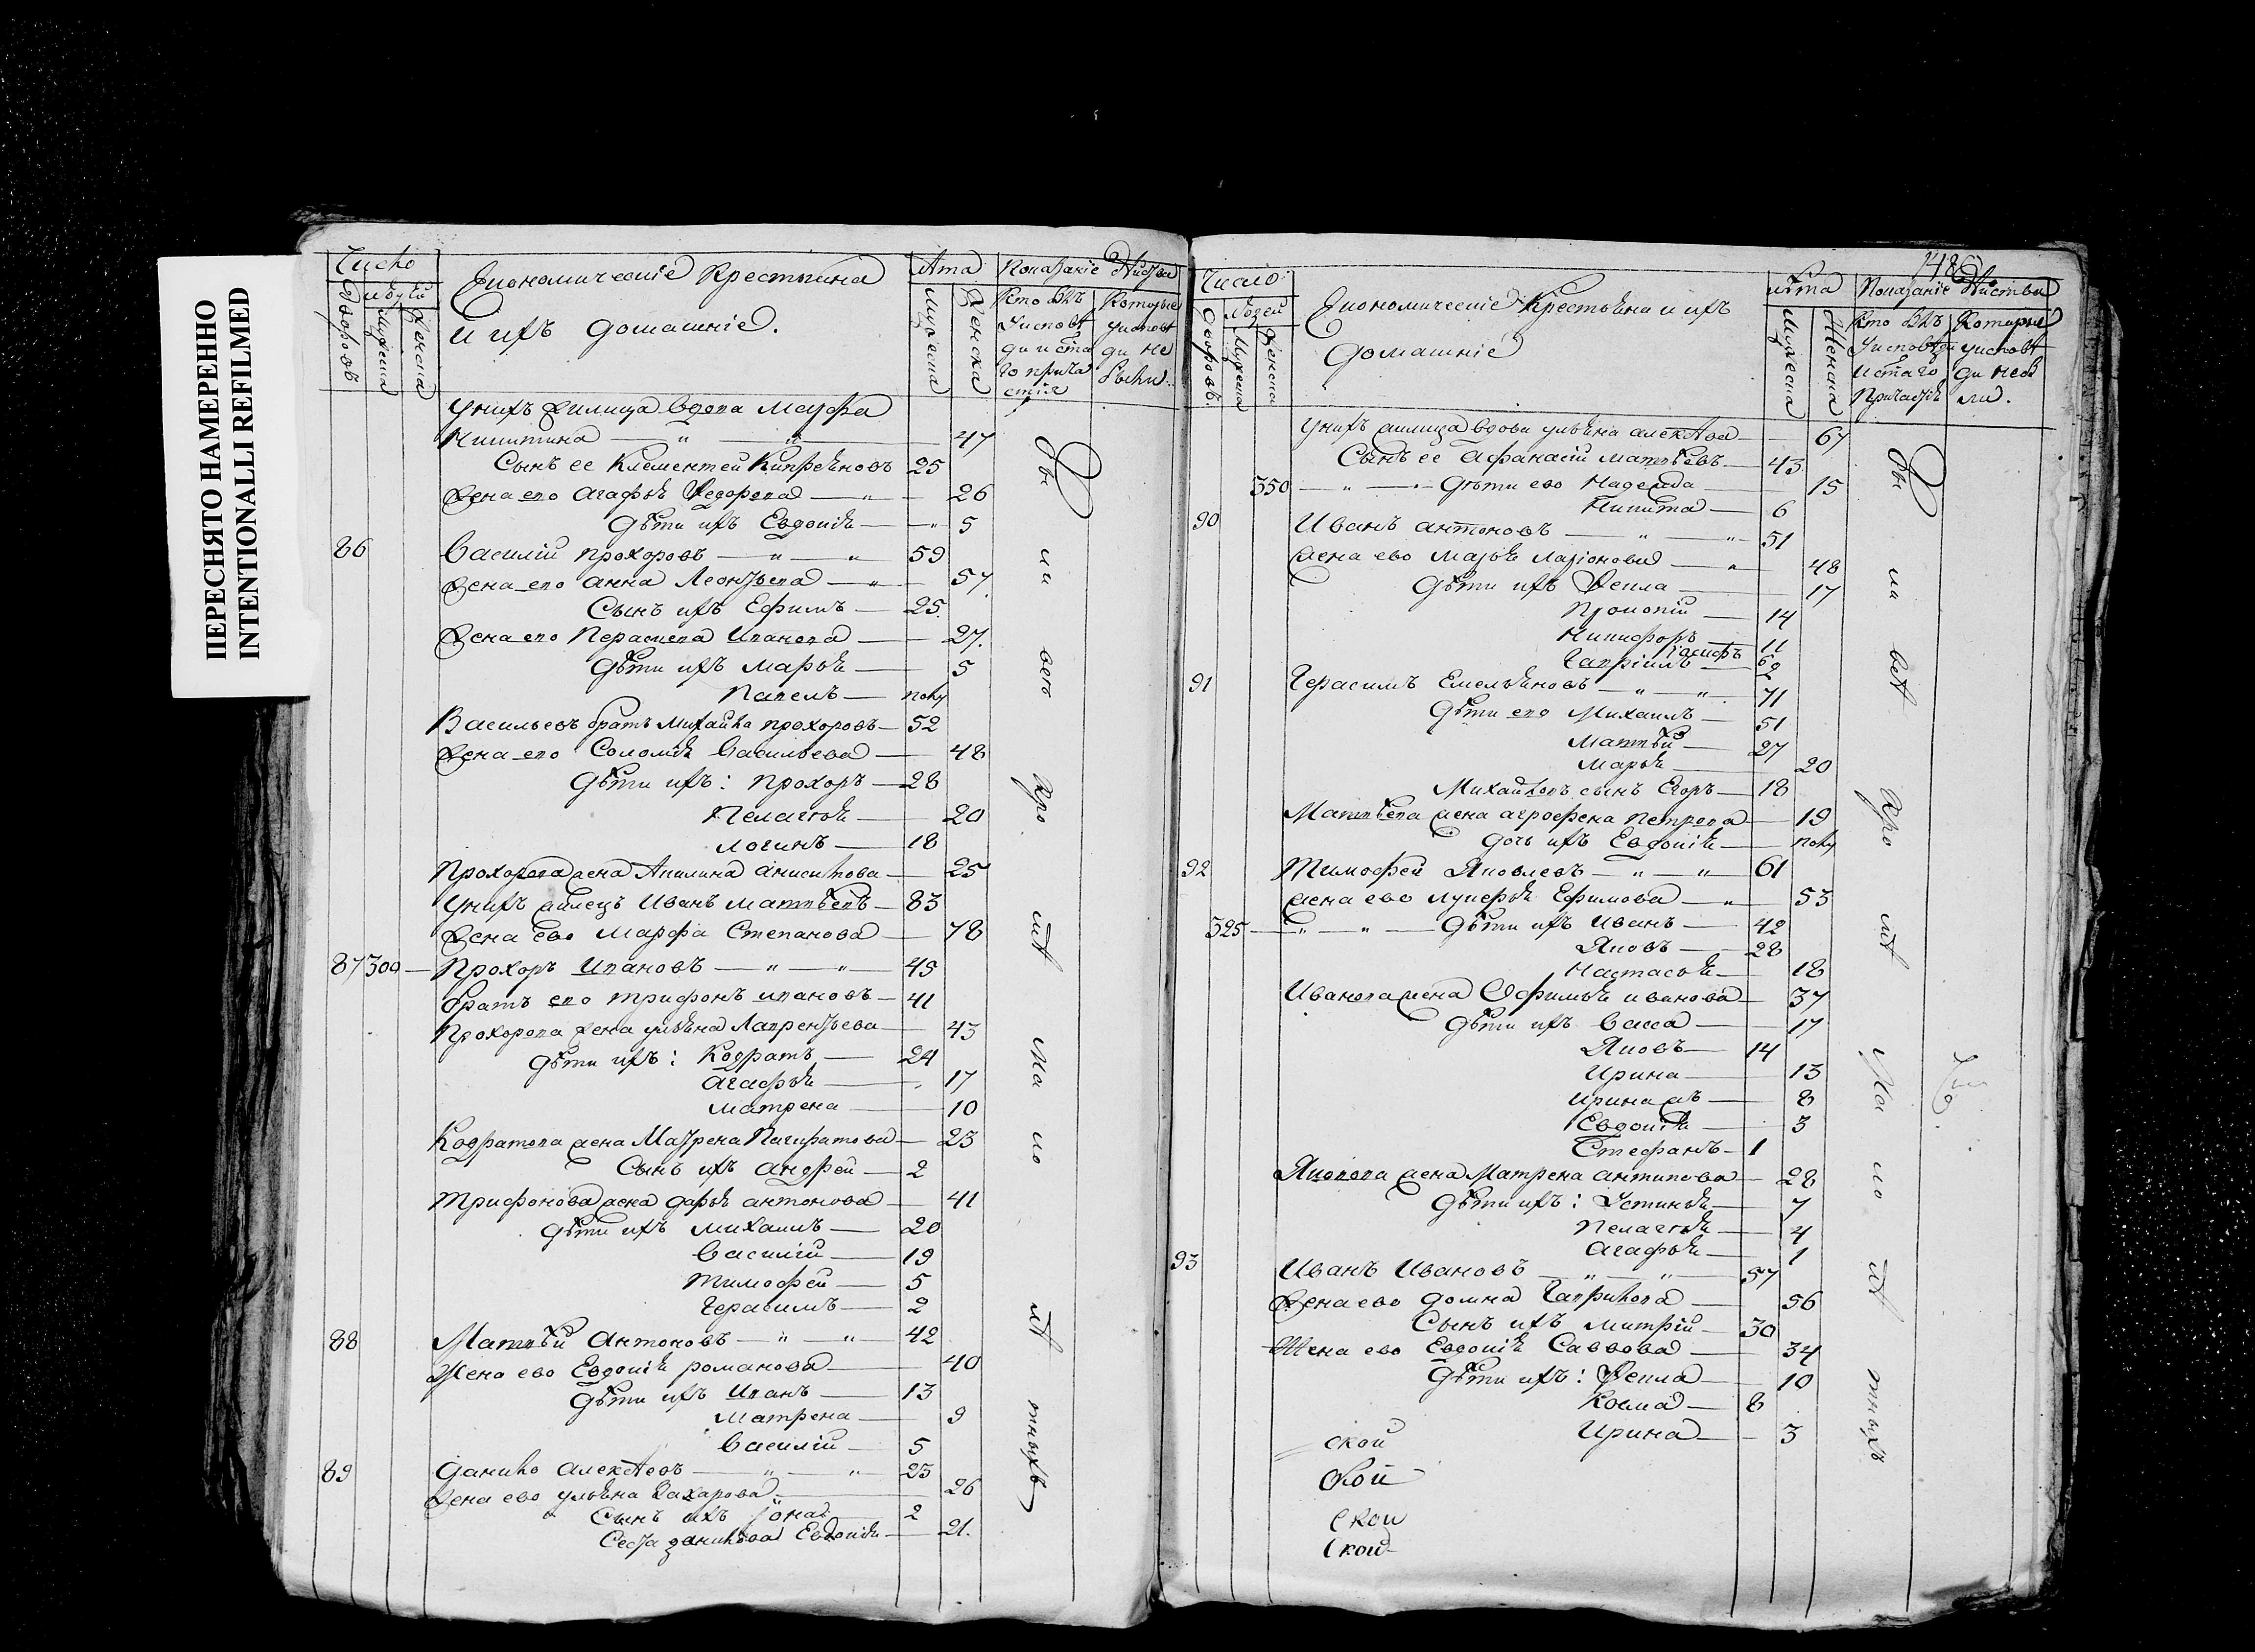 ПЕРЕСНЯТО НАМЕРЕННО
INTENTIONALLI REFILMED
Число
людей
Дворовъ
мужеска
женска
Економическіе крестьяна
и ихъ домашніе.
лѣта
мужеска
женска
Показаніе дѣйства
Кто былъ
у исповѣ
ди и ста
го прича
стія
Которые
у исповѣ
ди не
были.
у нихъ жилица вдова Марфа
Никитина — " — " 47
Сынъ ее Клементей Кипреяновъ 25
Жена ево Агафья Федорова — " — 26
Дѣти ихъ Евдокія — " 5
86 Василій Прохоровъ — " — " 59
Жена ево Анна Леонтьева — " — 57.
Сынъ ихъ Ефимъ — 25.
Жена ево Пераскева Иванова — 27.
Дѣти ихъ Марья — 5
Павелъ — полу
Васильевъ братъ Михайла Прохоровъ — 52
Жена ево Соломія Васильева — 48
Дѣти ихъ: Прохоръ — 28
Пелагея — 20
Логинъ — 18
Прохорова жена Акилина Анисимова — 25
У нихъ жилецъ Иванъ Матвѣевъ — 83
Жена ево Марфа Степанова — 78
87 300 — Прохоръ Ивановъ — " — " 45
братъ ево Трифонъ Ивановъ — 41
Прохорова жена Ульяна Лаврентьева — 43
дѣти ихъ: Кодратъ — 24
Агафья — 17
Матрена — 10
Кодратова жена Матрена — 23
Сынъ ихъ Андрей — 2
Трифонова жена Дарья Антонова — 41
дѣти ихъ Михаилъ — 20
Василій — 19
Тимофей — 5
Герасимъ — 2
88 Матвѣй Антоновъ — " — " 42
Жена ево Евдокія Романова — 40
Дѣти ихъ Иванъ — 13
Матрена — 9
Василій — 5
89 Данило Алексѣевъ — " — " 23
Жена ево Ульяна Захарова — 26
Сынъ ихъ Іона 2
Сестра Данилова Евдокія — 21.
148
Число
людей
дворовъ.
мужеска
женска
Економическіе Крестьяна и ихъ
домашніе
лѣта
мужеска
женска
Показаніе дѣйства
Кто былъ
у исповѣди
и стаго
Причастія
Которые
у исповѣ
ди небы
ли.
У нихъ жилица вдова Ульяна Алексѣева — 67
Сынъ ее Афанасій Матвѣевъ — 43
350 — " — Дѣти ево Надежда — 15
Никита — 6
90 Иванъ Антоновъ — " — " 51
жена ево Марья Ларіонова — " 48
Дѣти ихъ Фекла — 17
Прокопій — 14
Никифоръ — 11
Гавріилъ — 2
91 Герасимъ Емельяновъ — " — " 71
Дѣти ево Михаилъ — 51
Матвѣй — 27
Марья — 20
Михайловъ сынъ Егоръ — 18
Матвѣева жена Агрофена Петрова — 19
дочь ихъ Евдокія — полу
92 Тимофей Яковлевъ — " — " 61
жена ево Лукерья Ефимова — " — 53
325 — " — " — Дѣти ихъ Иванъ — 42
Яковъ — 28
Настасья — 18
Иванова жена Офимья Иванова — 37
дѣти ихъ Васса — 17
Яковъ — 14
Ирина — 13
Ирина жъ — 8
Евдокія — 3
Стефанъ — 1
Яковова жена Матрена Антипова — 28
Дѣти ихъ: Устинья — 7
Пелагея — 4
Агафья — 1
93 Иванъ Ивановъ — " — " 57
Жена ево Домна Гаврилова — 56
Сынъ ихъ Митрій — 30
Жена ево Евдокія Саввова — 34
Дѣти ихъ: Фекла — 10
Козма — 8
Ирина — 3
ской
Ской
Ской
Ской